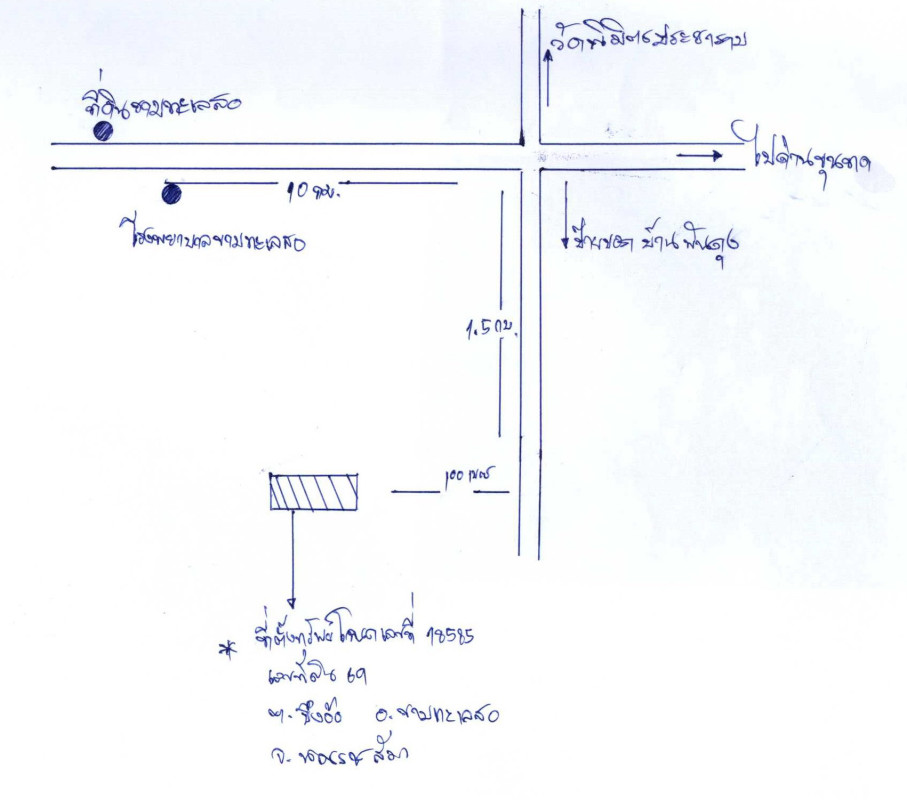 วัดพิมิตรประชาราม
ที่ดินขามทะเลสอ
ไปด่านขุนทด
10 กม.
โรงพยาบาลขามทะเลสอ
บ้านพันดุง
1.5 กม.
100 เมตร
* ที่ตั้งทรัพย์ โฉนดเลขที่ 18585
เลขที่ดิน 69
ต. บึงอ้อ อ. ขามทะเลสอ
จ. นครราชสีมา